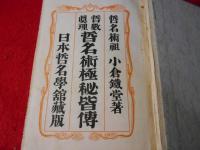 哲名術祖 小倉鐵堂著
哲教眞理 哲名術極秘皆傳
日本哲名學舘藏版